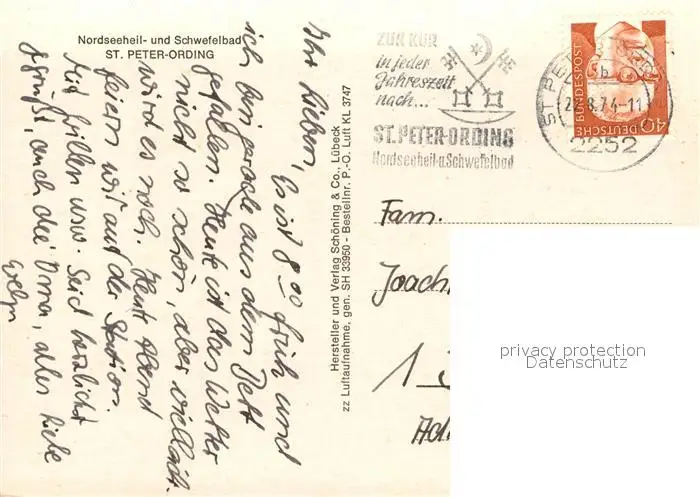 Nordseeheil- und Schwefelbad
ST. PETER-ORDING
Ihr Lieben,
Es ist 8 00 früh und
ich bin gerade aus dem Bett
gefallen. Heute ist das Wetter
nicht so schön, aber vielleicht
wird es noch. Heute Abend
feiern wir auf der Station.
Mit Grillen usw. Seid herzlichst
gegrüßt, auch die Oma, alles Liebe
Hersteller und Verlag Schöning & Co., Lübeck
zz Luftaufnahme, gen. SH 33950 - Bestellnr. P.-O. Luft KL 3747
ZUR KUR
in jeder
Jahreszeit
nach...
ST. PETER-ORDING
Nordseeheil-u.Schwefelbad
ST PETER-ORDING
sb
8.74-11
2252
DEUTSCHE
BUNDESPOST
40
Fam.
Joach
1
privacy protection
Datenschutz